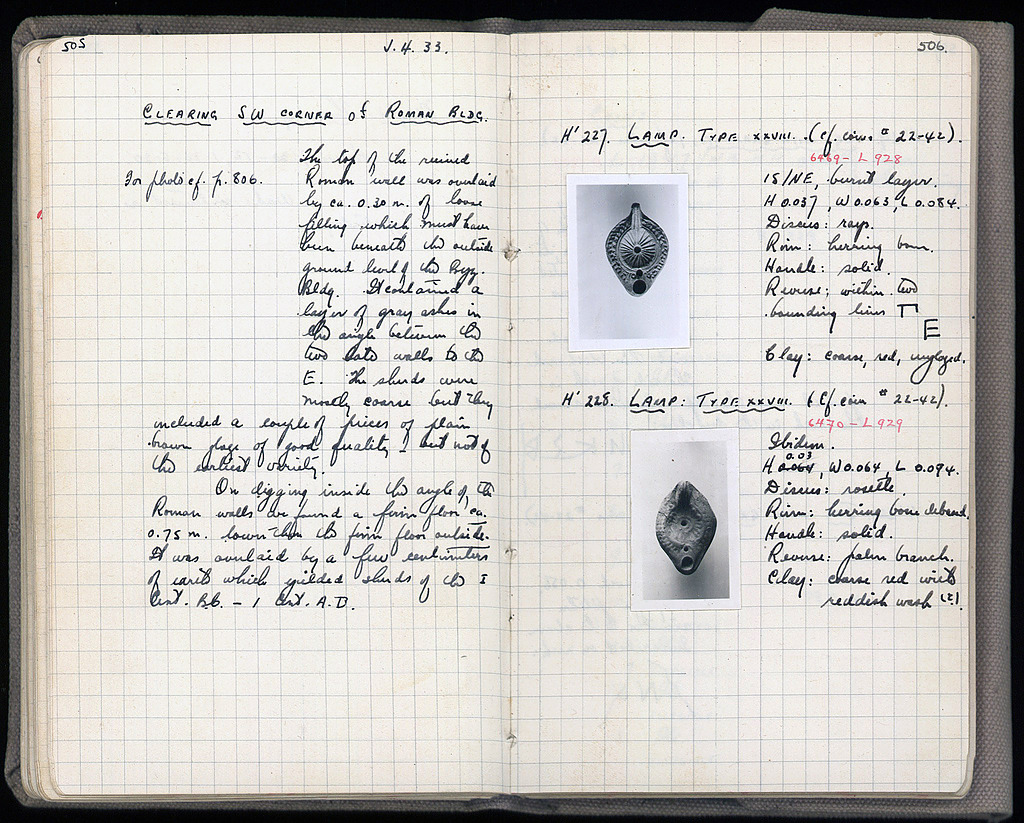 505
J. 4. 33.
CLEARING SW CORNER of ROMAN BLDG.
The top of the ruined
For photo cf. p. 806.
Roman wall was overlaid
by ca. 0.30 m. of loose
filling which must have
been beneath the outside
ground level of the Byz.
Bldg. It contained a
layer of gray ashes in
the angle between the
two late walls to the
E. The sherds were
mostly coarse but they
included a couple of pieces of plain
brown glaze of good quality, but not of
the earliest variety.
On digging inside the angle of the
Roman walls we found a firm floor ca.
0.75 m. lower than the firm floor outside.
It was overlaid by a few centimeters
of earth which yielded sherds of the I
Cent. B.C. – I Cent. A.D.
506.
H' 227. LAMP. TYPE XXVIII. (cf. coins # 22-42).
6469 - L 928
15/NE, burnt layer.
H 0.037, W 0.063, L 0.084.
Discus: rays.
Rim: herring bone.
Handle: solid.
Reverse; within two
bounding lines Γ
E
Clay: coarse, red, unglazed.
H' 228. LAMP: TYPE XXVIII. (Cf. coins # 22-42).
6470 - L 929
Ibidem.
0.03
H 0.064, W 0.064, L 0.094.
Discus: rosette.
Rim: herring bone debased.
Handle: solid.
Reverse: palm branch.
Clay: coarse red with
reddish wash (?).